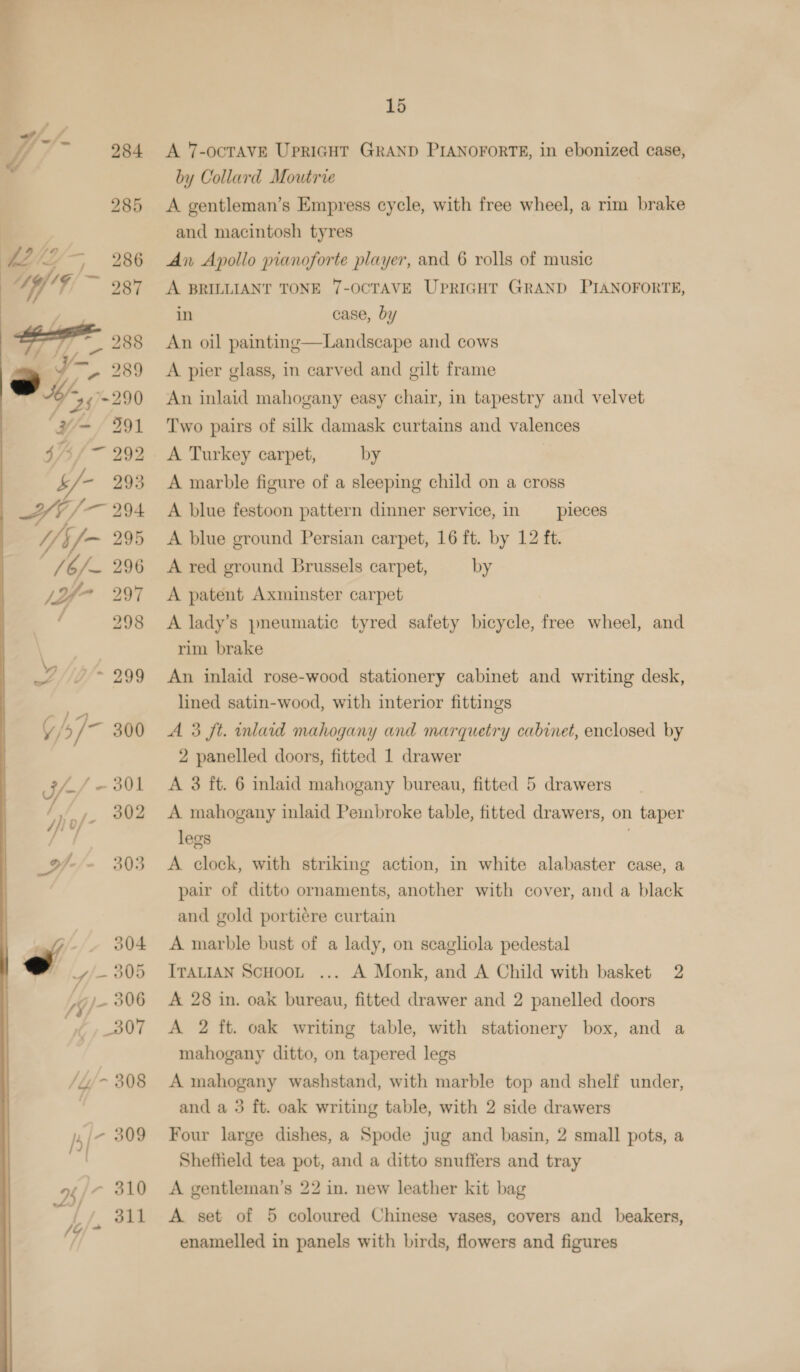 15
284 A 7-OCTAVE UPRIGHT GRAND PIANOFORTE, in ebonized case,
by Collard Moutrie
285 A gentleman's Empress cycle, with free wheel, a rim brake
and macintosh tyres
286 An Apollo pianoforte player, and 6 rolls of music
287 A BRILLIANT TONE 7-OCTAVE UPRIGHT GRAND PIANOFORTE,
in case, by
288 An oil painting—Landscape and cows
289 A pier glass, in carved and gilt frame
290 An inlaid mahogany easy chair, in tapestry and velvet
291 Two pairs of silk damask curtains and valences
292 A Turkey carpet, by
293 A marble figure of a sleeping child on a cross
294 A blue festoon pattern dinner service, in pieces
295 A blue ground Persian carpet, 16 ft. by 12 ft.
296 A red ground Brussels carpet, by
297 A patent Axminster carpet
298 A lady's pneumatic tyred safety bicycle, free wheel, and
rim brake
299 An inlaid rose-wood stationery cabinet and writing desk,
lined satin-wood, with interior fittings
300 A 3 ft. inlaid mahogany and marquetry cabinet, enclosed by
2 panelled doors, fitted 1 drawer
301 A 3 ft. 6 inlaid mahogany bureau, fitted 5 drawers
302 A mahogany inlaid Pembroke table, fitted drawers, on taper
legs
303 A clock, with striking action, in white alabaster case, a
pair of ditto ornaments, another with cover, and a black
and gold portière curtain
304 A marble bust of a lady, on scagliola pedestal
305 ITALIAN SCHOOL ... A Monk, and A Child with basket 2
306 A 28 in. oak bureau, fitted drawer and 2 panelled doors
307 A 2 ft. oak writing table, with stationery box, and a
mahogany ditto, on tapered legs
308 A mahogany washstand, with marble top and shelf under,
and a 3 ft. oak writing table, with 2 side drawers
309 Four large dishes, a Spode jug and basin, 2 small pots, a
Sheffield tea pot, and a ditto snuffers and tray
310 A gentleman's 22 in. new leather kit bag
311 A set of 5 coloured Chinese vases, covers and beakers,
enamelled in panels with birds, flowers and figures